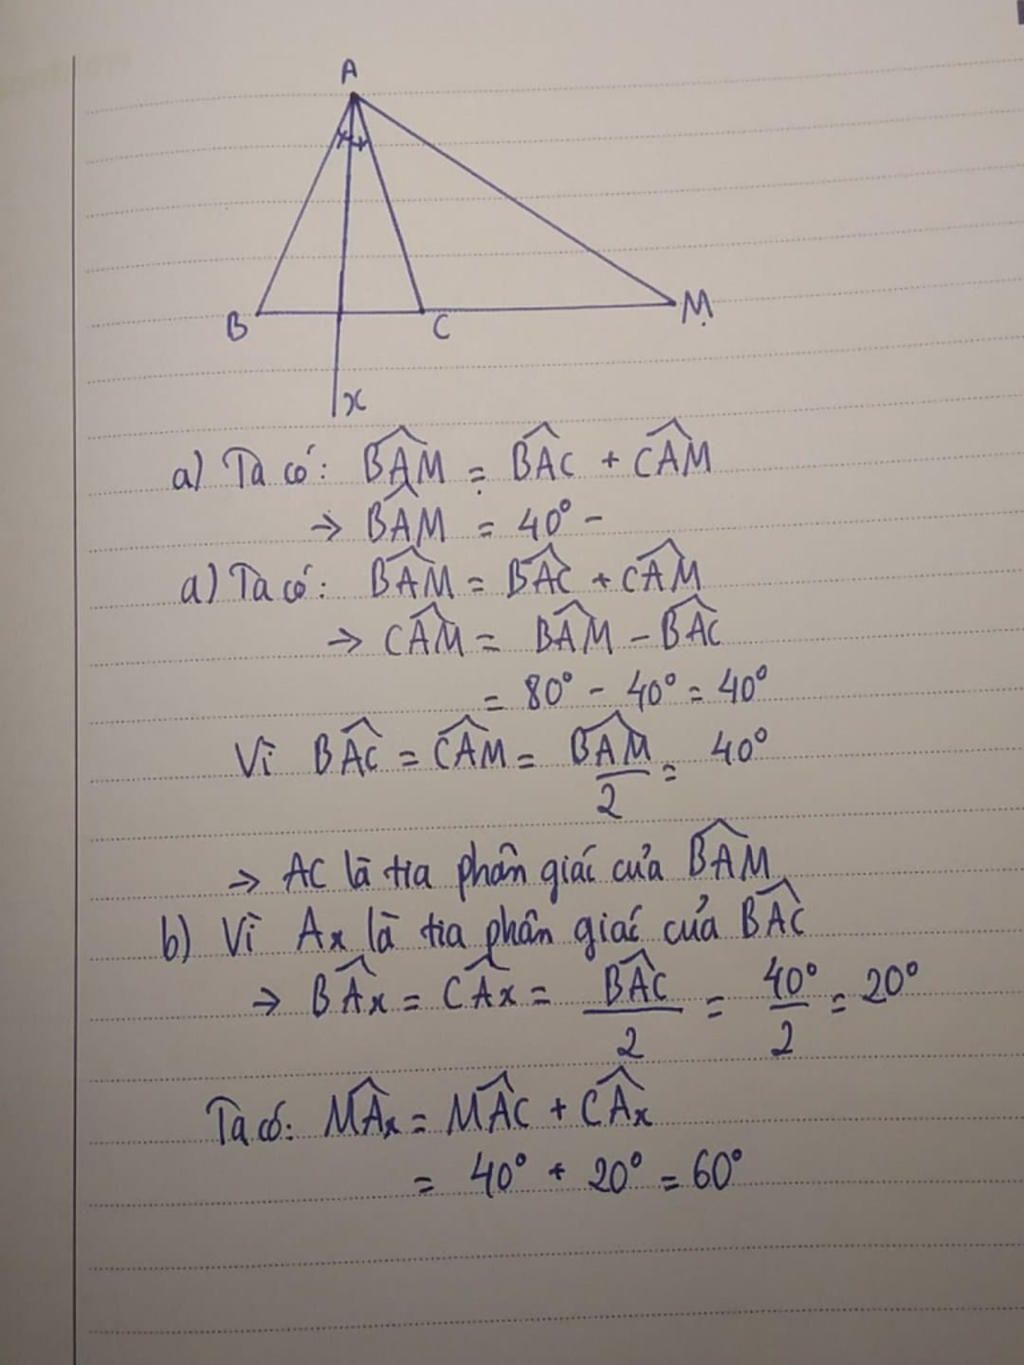 A
B
C
M
x
a) Ta có: BAM̂ = BAĈ + CAM̂
→ BAM̂ = 40° -
a) Ta có: BAM̂ = BAĈ + CAM̂
→ CAM̂ = BAM̂ - BAĈ
= 80° - 40° = 40°
Vì BAĈ = CAM̂ = BAM̂/2 = 40°
→ AC là tia phân giác của BAM̂
b) Vì Ax là tia phân giác của BAĈ
→ BAx̂ = CAx̂ = BAĈ/2 = 40°/2 = 20°
Ta có: MAx̂ = MAĈ + CAx̂
= 40° + 20° = 60°